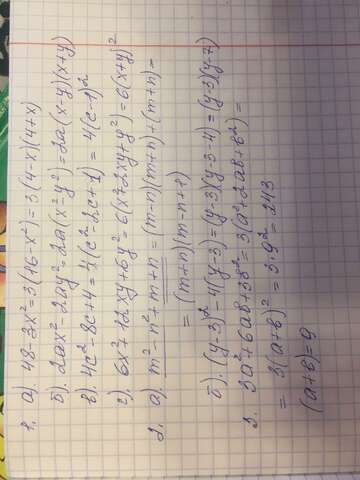 1. а). 48-3x²=3(16-x²)=3(4-x)(4+x)
б). 2ax²-2ay²=2a(x²-y²)=2a(x-y)(x+y)
в). 4c²-8c+4=4(c²-2c+1)=4(c-1)²
г). 6x²+12xy+6y²=6(x²+2xy+y²)=6(x+y)²
2. а). m²-n²+m+n=(m-n)(m+n)+(m+n)=
=(m+n)(m-n+1)
б). (y-3)²-4(y-3)=(y-3)(y-3-4)=(y-3)(y-7)
3. 3a²+6ab+3b²=3(a²+2ab+b²)=
=3(a+b)²=3·9²=243
(a+b)=9